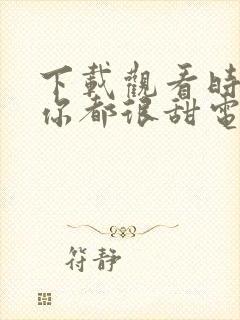 下載觀看時
你都很甜電
符靜